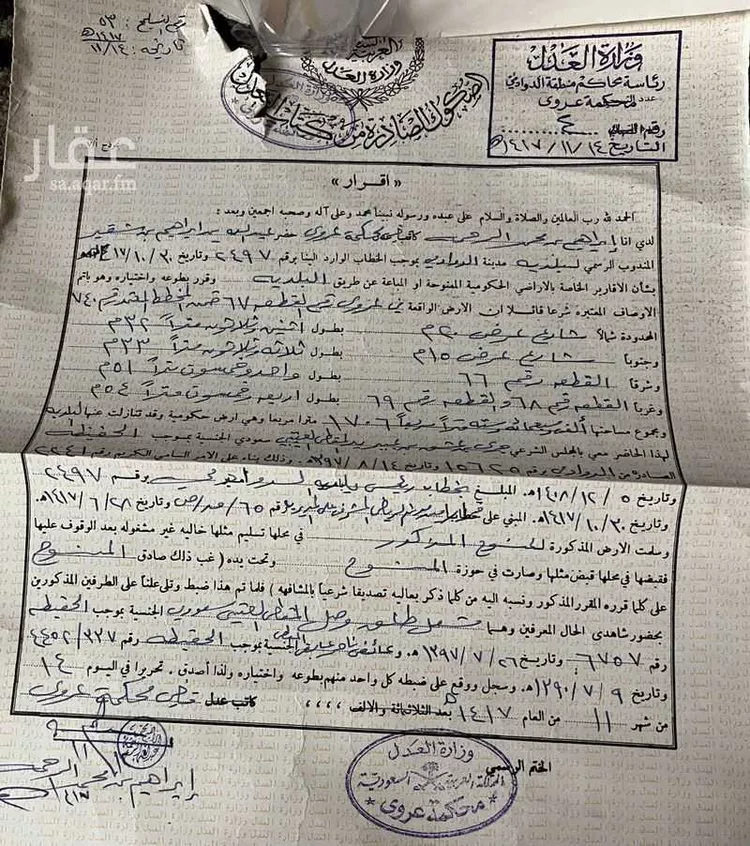 رقم التسليم : ٥٣
تاريخه : ١٤١٧/١١/١٤هـ
وزارة العدل
رئاسة محاكم منطقة الدوادمي
محكمة عروى
التاريخ ١٤١٧/١١/١٤هـ
وزارة العدل
الصكوك الصادرة من كتابات العدل
عقار
sa.aqar.fm
« اقرار »
الحمد لله رب العالمين والصلاة والسلام على عبده ورسوله نبينا محمد وعلى آله وصحبه اجمعين وبعد :
لدي انا إبراهيم بن محمد الرحمى قاضي محكمة عروى حضر عبد الله بن إبراهيم بن شقير
المندوب الرسمي لـ بلدية مدينة الدوادمي بموجب الخطاب الوارد الينا برقم ٢٤٩٧ وتاريخ ١٧/١٠/٣٠هـ
بشأن الاقارير الخاصة بالاراضي الحكومية الممنوحة أو المباعة عن طريق البلدية وقرر بطوعه واختياره وهو باتم
الاوصاف المعتبرة شرعا قائلا ان الارض الواقعة في عروى رقم القطعه ٦٧ ضمن المخطط المعتمد رقم ٧٤٠
المحدودة شمالاً شارع عرض ٢٠م بطول اثنين وثلاثون متراً ٣٢م
وجنوبا شارع عرض ١٥م بطول ثلاثه وثلاثون متراً ٣٣م
وشرقا القطعه رقم ٦٦ بطول واحد وخمسون متراً ٥١م
وغربا القطعه رقم ٦٨ والقطعه رقم ٦٩ بطول اربعه وخمسون متراً ٥٤م
ومجموع مساحتها ألف وسبعمائه وسته متراً مربعاً ١٧٠٦ مترا مربعا وهي ارض حكومية وقد تنازلت عنها البلدية
لهذا الحاضر معي بالمجلس الشرعي سعودي الجنسية بموجب الحفيظة
الصادره من الدوادمي رقم ١٥٦٢٥ وتاريخ ١٣٩٧/٨/١٤هـ وذلك بناء على الامر السامي الكريم رقم ٢٢٤١
وتاريخ ١٤٠٨/١٢/٥هـ المبلغ بخطاب رئيس بلدية الدوادمي برقم ٢٤٩٧
وتاريخ ١٤١٧/١٠/٣٠هـ المبني على رقم ٦٥/ص وتاريخ ١٤١٧/٦/٢٨هـ
وسلمت الارض المذكورة للممنوح المذكور في محلها تسليم مثلها خاليه غير مشغوله بعد الوقوف عليها
فقبضها في محلها قبض مثلها وصارت في حوزة الممنوح وتحت يده ( غب ذلك صادق الممنوح
على كلما قرره المقرر المذكور ونسبه اليه من كلما ذكر بعاليه تصديقا شرعياً بالمشافهه ) فلما تم هذا ضبط وتلى علناً على الطرفين المذكورين
بحضور شاهدى الحال المعرفين وهما العتيبي سعودي الجنسية بموجب الحفيظه
رقم ٦٧٥٧ وتاريخ ١٣٩٧/٧/٢٦هـ الجنسية بموجب الحفيظه رقم ٤٤٥٢/٣٢٧
وتاريخ ١٣٩٠/٧/٩هـ وسجل ووقع على ضبطه كل واحد منهم بطوعه واختياره ولذا أصدق . تحريرا في اليوم ١٤
من شهر ١١ من العام ١٤١٧هـ بعد الثلاثمائة والالف ،،،، كاتب عدل قاضي محكمة عروى
الختم الرسمي
وزارة العدل
المملكة العربية السعودية
محكمة عروى
إبراهيم بن محمد الرحمى